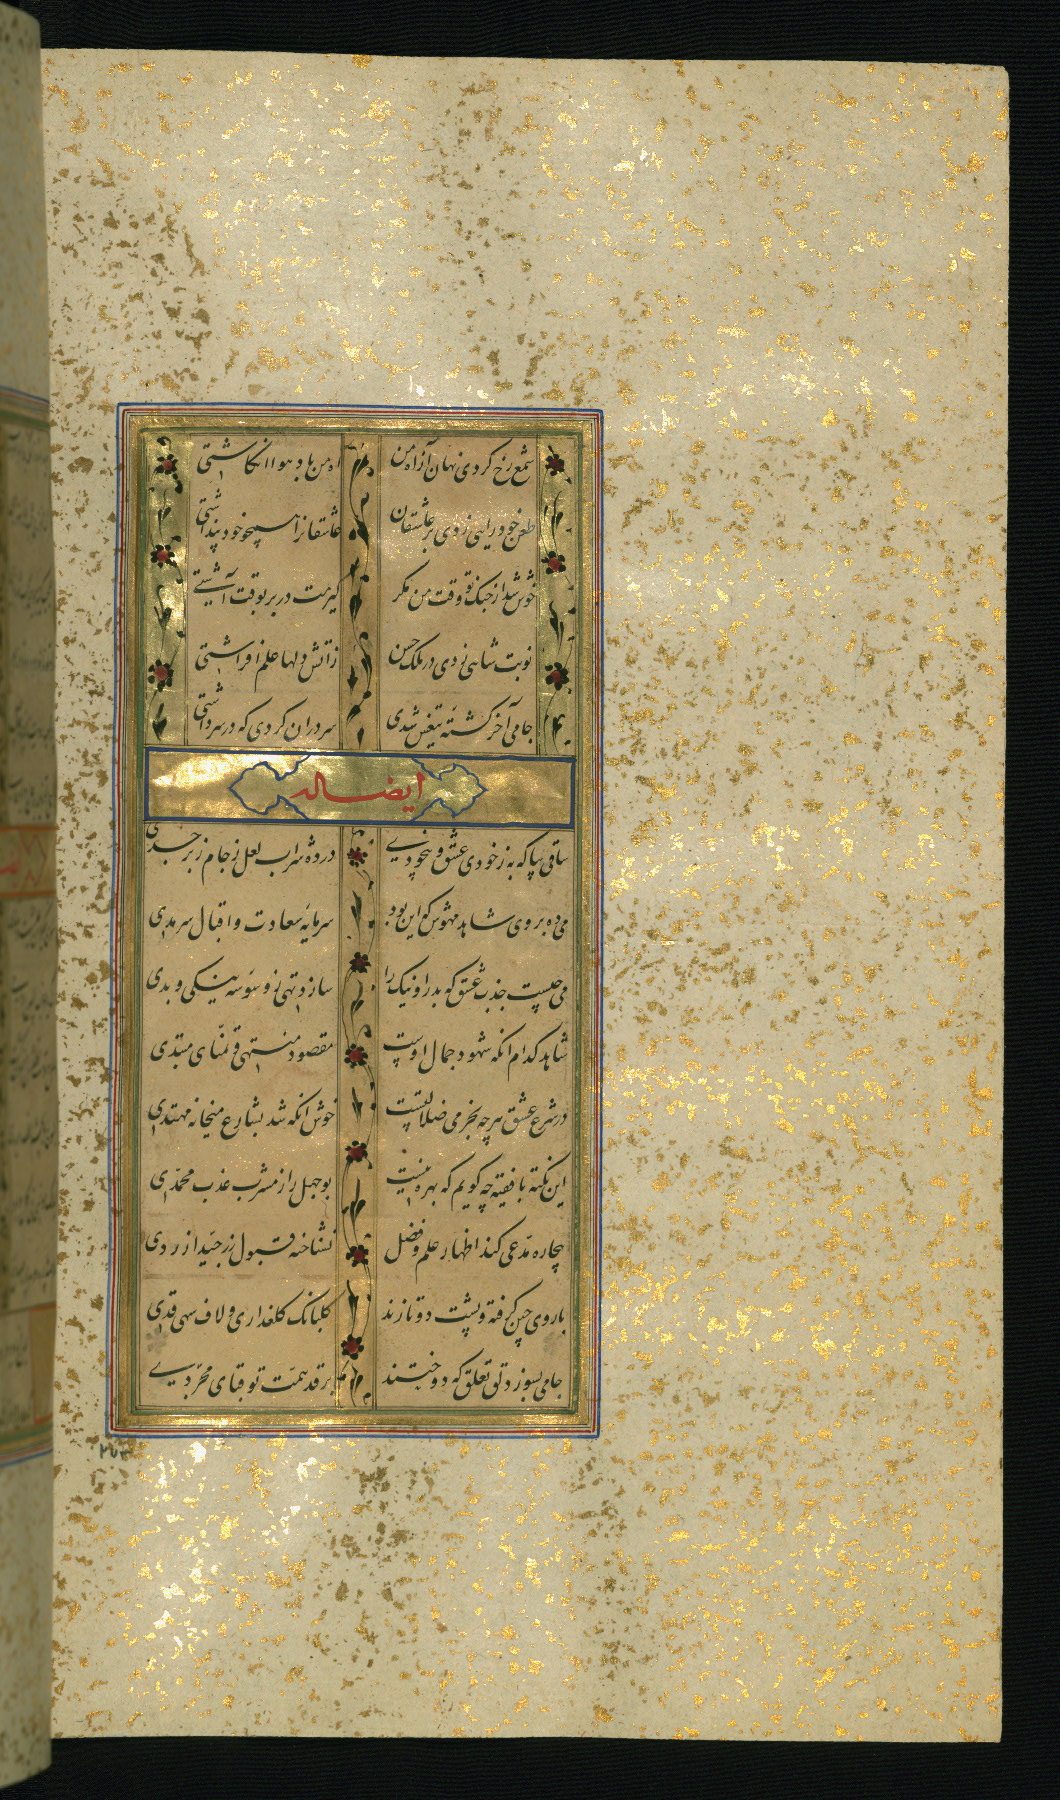 شمع رخ کردی نهان از آه من
آه من باد هوا انگاشتی
طعن خودرایی زدی بر عاشقان
عاشقانرا همچو خود پنداشتی
خوش شد از جنگ تو وقت من مگر
گیرمت در بر بوقت آشتی
نوبت شاهی زدی در ملک حسن
زاتش دلها علم افراشتی
جامی آخر کشته تیغش شدی
سر در ان کردی که در سر داشتی
ایضا له
ساقی بیا که به ز خودی عشق و بیخودی
در ده شراب لعل ز جام زبرجدی
می ده بروی شاهد مهوش که این بود
سرمایه سعادت و اقبال سرمدی
می چیست جذب عشق که بد را و نیک را
سازد تهی ز وسوسه نیکی و بدی
شاهد کدام انکه شهود جمال اوست
مقصود منتهی و تمنای مبتدی
در شرع عشق هر چه بجز می ضلالتست
خوش انکه شد بشارع میخانه مهتدی
این نکته با فقیه چه گویم که بهره نیست
بوجهل را ز مشرب عذب محمدی
بیچاره مدعی کند اظهار علم و فضل
نشناخته قبول ز رد جید از ردی
با روی چین گرفته و پشت دوتا زند
گلبانگ گلعذاری و لاف سهی قدی
جامی بسوز دلق تعلق که دوختند
بر قد همت تو قبای مجردی